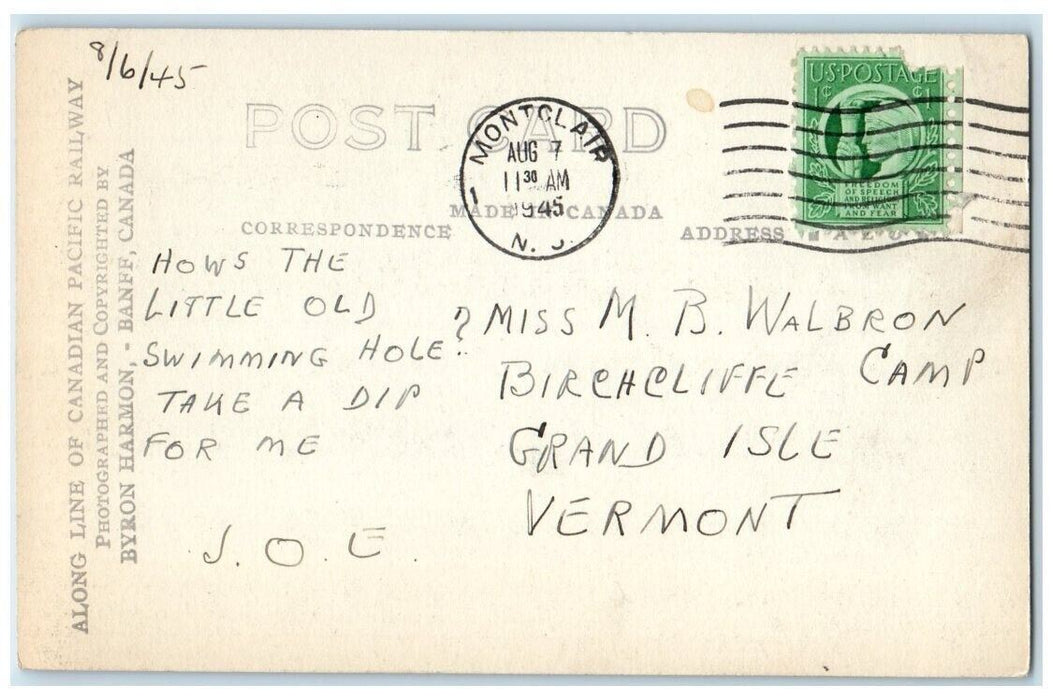 8/6/45
POST CARD
MONTCLAIR
AUG 7
11 30 AM
1945
N. J.
1
U.S. POSTAGE
1¢ ¢1
FREEDOM
OF SPEECH
AND RELIGION
FROM WANT
AND FEAR
MADE IN CANADA
CORRESPONDENCE
ADDRESS
ALONG LINE OF CANADIAN PACIFIC RAILWAY
PHOTOGRAPHED AND COPYRIGHTED BY
BYRON HARMON, - BANFF, CANADA
HOWS THE
LITTLE OLD
SWIMMING HOLE?
TAKE A DIP
FOR ME
J. O. E.
MISS M. B. WALBRON
BIRCHCLIFFE CAMP
GRAND ISLE
VERMONT